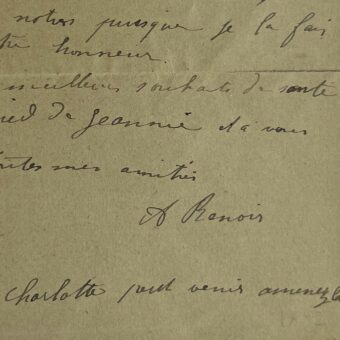 notions puisque je la fais
tre honneur.
meilleurs souhaits de santé
ied de Jeannie et à vous
utes mes amitiés
A Renoir
Charlotte peut venir amenez la